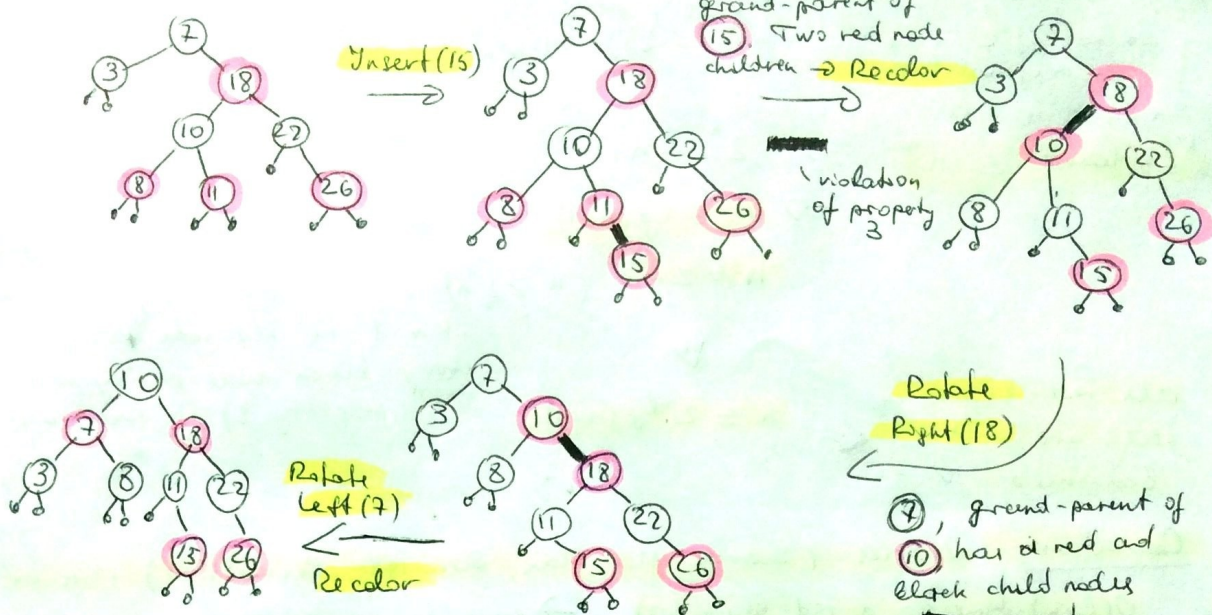 7
3 18
10 22
8 11 26
Insert(15)
7
3 18
10 22
8 11 26
15
grand-parent of
15. Two red node
children → Recolor
violation
of property
3
7
3 18
10 22
8 11 26
15
Rotate
Right(18)
7, grand-parent of
10 has a red and
black child nodes
7
3 10
8 18
11 22
15 26
Rotate
Left(7)
Recolor
10
7 18
3 8 11 22
15 26